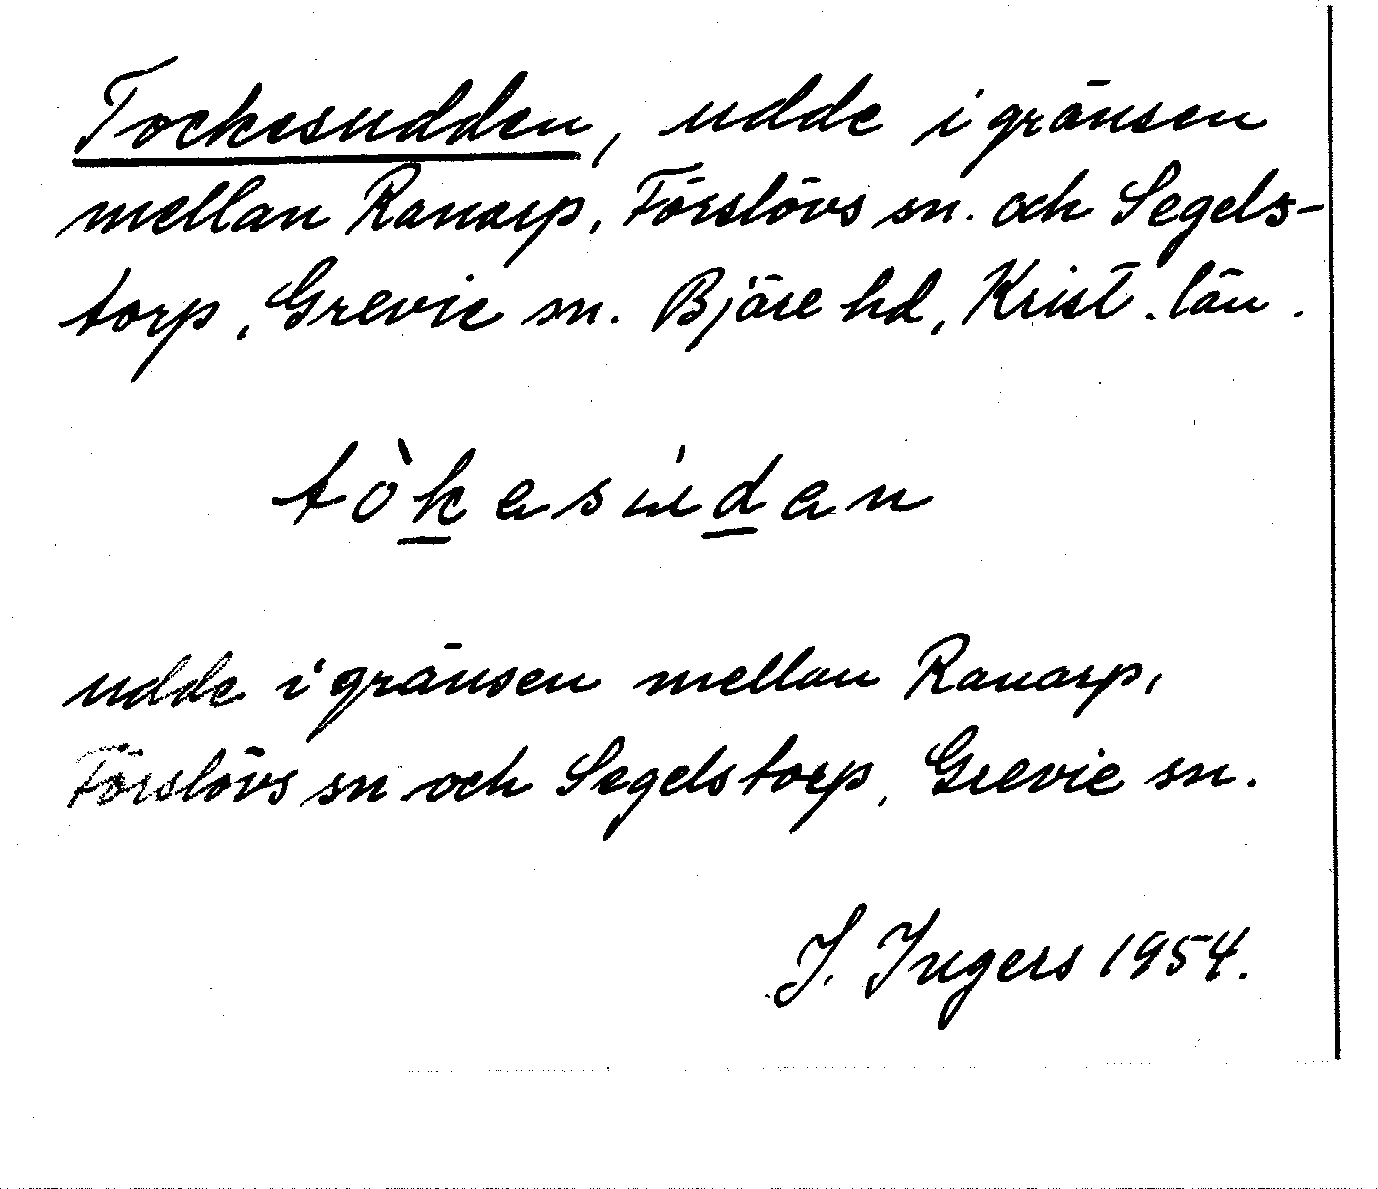 Tockesudden, udde i gränsen
mellan Ranarp, Förslövs sn. och Segels-
torp, Grevie sn. Bjäre hd, Krist. län.
tòkesu̍den
udde i gränsen mellan Ranarp,
Förslövs sn och Segelstorp, Grevie sn.
I. Ingers 1954.